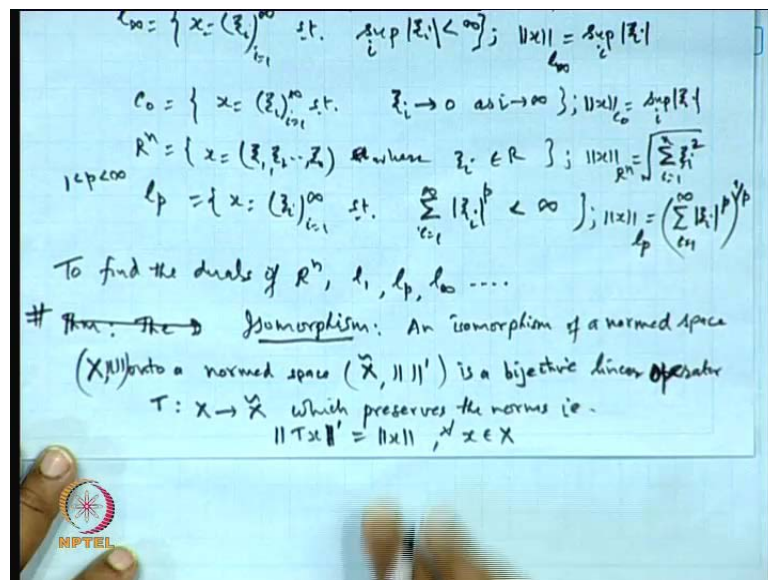 l∞ = { x = (ξi)∞i=1 s.t. sup i |ξi| < ∞ }; ||x|| l∞ = sup i |ξi|
C0 = { x = (ξi)∞i=1 s.t. ξi → 0 as i → ∞ }; ||x|| C0 = sup i |ξi|
R^n = { x = (ξ1, ξ2, .., ξn) where ξi ∈ R }; ||x|| R^n = √(∑ n i=1 ξi^2)
1<p<∞ lp = { x = (ξi)∞i=1 s.t. ∑ ∞ i=1 |ξi|^p < ∞ }; ||x|| lp = (∑ ∞ i=1 |ξi|^p)^1/p
To find the duals of R^n, l1, lp, l∞ ....
# Thm: The Isomorphism: An isomorphism of a normed space
(X, || ||) onto a normed space (X̃, || ||') is a bijective linear operator
T: X → X̃ which preserves the norms ie.
||Tx||' = ||x||, ∀ x ∈ X
NPTEL